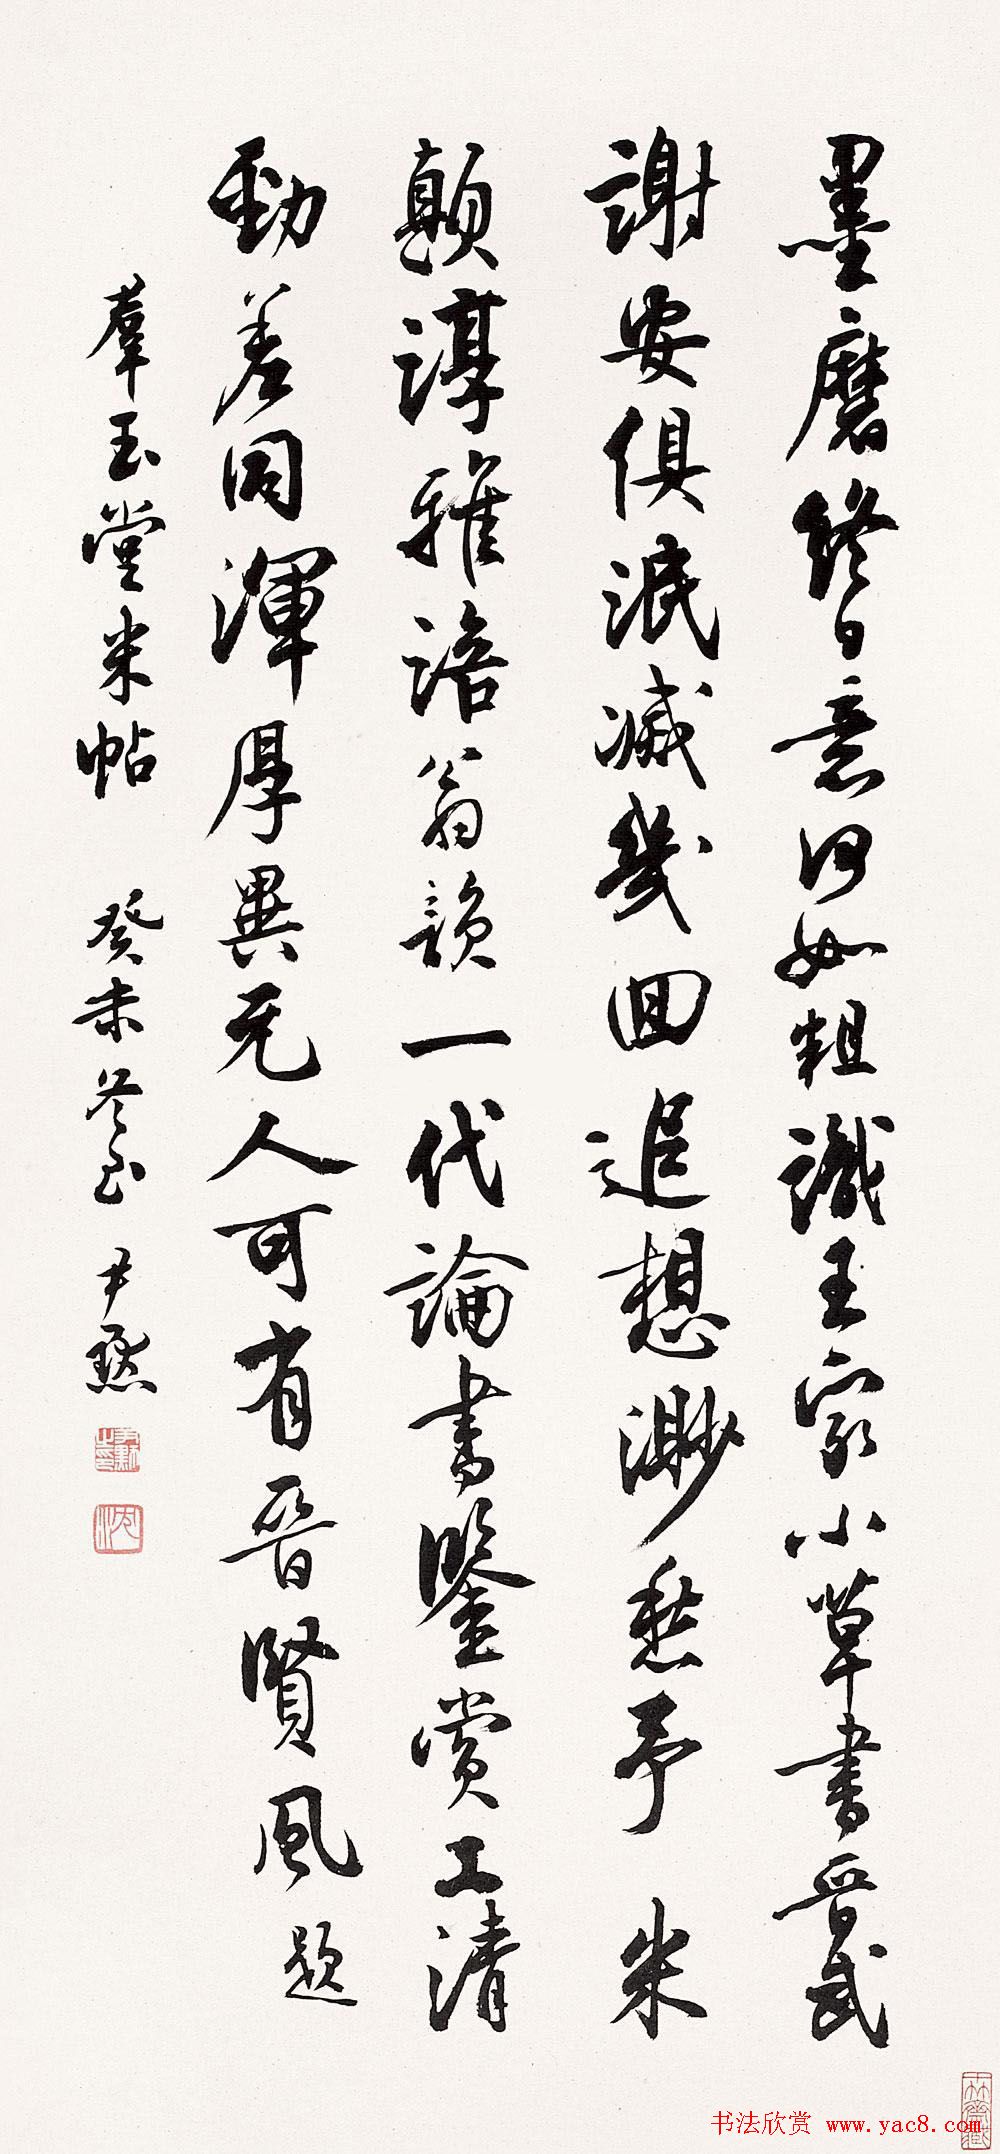 墨磨終日意何如粗識王家小草書晉武
謝安俱泯滅幾回追想渺愁予 米
顛淳雅涪翁韻一代論書鑒賞工清
勁差同渾厚異无人可有晉賢風 題
羣玉堂米帖 癸未冬至 尹默
沈
书法欣赏 www.yac8.com